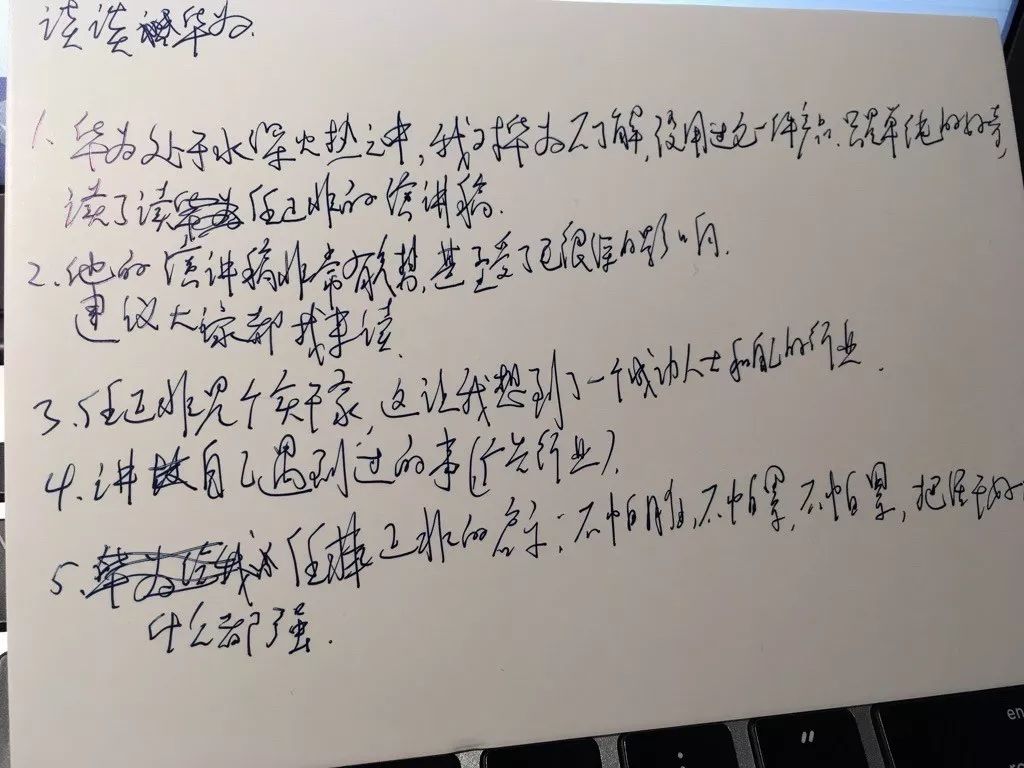 谈谈华为
1. 华为处于水深火热之中,我对华为不了解,没用过它一件产品.只是单纯的好奇,
读了读任正非的演讲稿.
2. 他的演讲稿非常有气势,甚至受了毛很深的影响.
建议大家都找来读.
3. 任正非是个实干家,这让我想到了一个成功人士和自己的行业.
4. 讲自己遇到过的事(行业).
5. 任正非的名言:不怕脏,不怕累,不怕累,把活干好
什么都强.
en